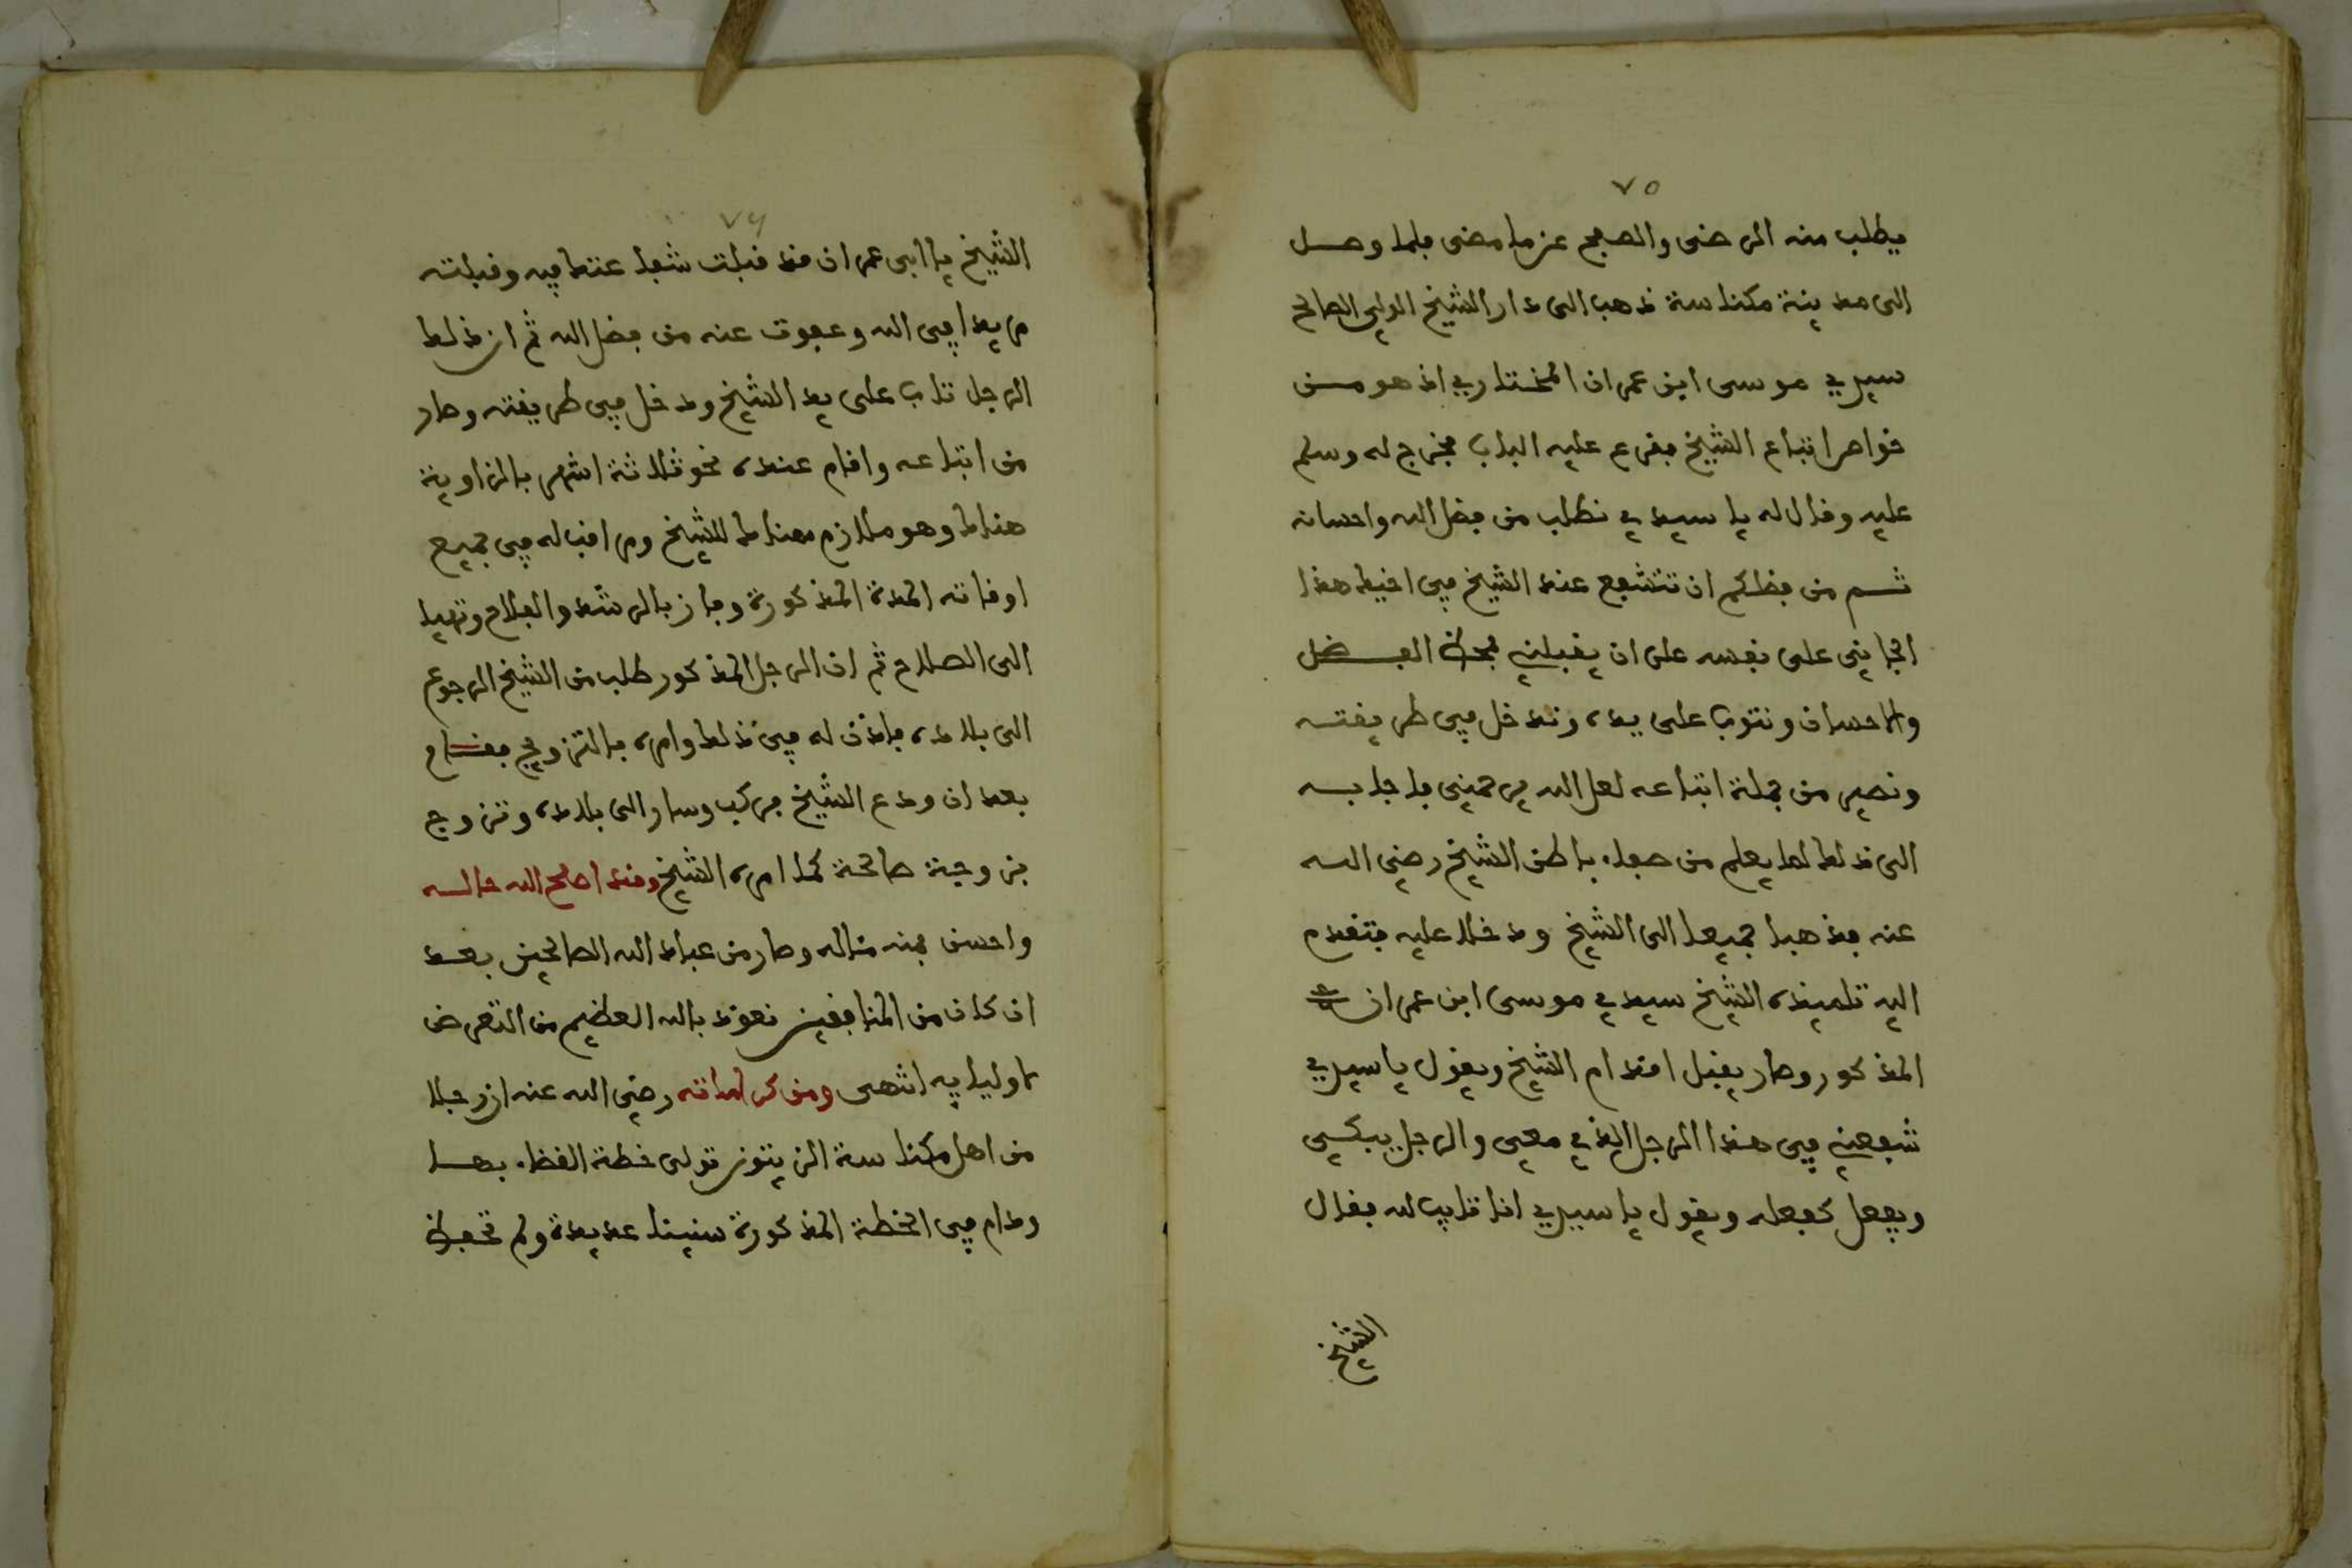 ٧٥
يطلب منه الرضى والصفح عن ما مضى فلما وصل
الى مدينة مكناسة ذهب الى دار الشيخ الولي الصالح
سيدي موسى ابن عمران المختاري اذ هو من
خواص اتباع الشيخ فقرع عليه الباب فخرج له وسلم
عليه وقال له يا سيدي نطلب من فضل الله واحسانه
ثم من فضلكم ان تتشفع عند الشيخ في اخيك هذا
الجاني على نفسه على ان يقبلني بمحض الفضل
والاحسان ونتوب على يده وندخل في طريقته
ونصير من جملة اتباعه لعل الله يرحمني فاجابه
الى ذلك لما يعلم من صفاء باطن الشيخ رضي الله
عنه فذهبا جميعا الى الشيخ ودخلا عليه فتقدم
اليه تلميذه الشيخ سيدي موسى ابن عمران
المذكور وصار يقبل اقدام الشيخ ويقول يا سيدي
شفعني في هذا الرجل الذي معي والرجل يبكي
ويفعل كفعله ويقول يا سيدي انا تايب لله فقال
الشيخ
٧٦
الشيخ يا ابى عمران قد قبلت شفاعتك فيه وقبلته
مريدا في الله وعفوت عنه من فضل الله ثم ان ذلك
الرجل تاب على يد الشيخ ودخل في طريقته وصار
من اتباعه واقام عنده نحو ثلاثة اشهر بالزاوية
هناك وهو ملازم هناك للشيخ ومراقب له في جميع
اوقاته المدة المذكورة وفاز بالرشد والفلاح وتهيا
الى الصلاح ثم ان الرجل المذكور طلب من الشيخ الرجوع
الى بلاده فاذن له في ذلك وامره بالتزويج فقام
بعد ان ودع الشيخ فركب وسار الى بلاده وتزوج
بزوجة صالحة كما امره الشيخ وقد اصلح الله حاله
واحسن بمنه مئاله وصار من عباد الله الصالحين بعد
ان كان من المنافقين نعوذ بالله العظيم من التعرض
لاوليايه انتهى ومن كراماته رضي الله عنه ان رجلا
من اهل مكناسة الزيتون تولى خطة القضاء بها
ودام في الخطة المذكورة سنينا عديدة ولم تحفظ